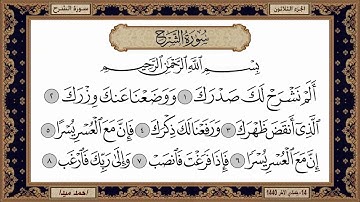 الجزء الثلاثون
سورة الشرح
سُورَةُ الشَّرْحِ
بِسْمِ اللَّهِ الرَّحْمَٰنِ الرَّحِيمِ
أَلَمْ نَشْرَحْ لَكَ صَدْرَكَ ١ وَوَضَعْنَا عَنكَ وِزْرَكَ ٢
الَّذِي أَنقَضَ ظَهْرَكَ ٣ وَرَفَعْنَا لَكَ ذِكْرَكَ ٤ فَإِنَّ مَعَ الْعُسْرِ يُسْرًا ٥
إِنَّ مَعَ الْعُسْرِ يُسْرًا ٦ فَإِذَا فَرَغْتَ فَانصَبْ ٧ وَإِلَىٰ رَبِّكَ فَارْغَب ٨
1440